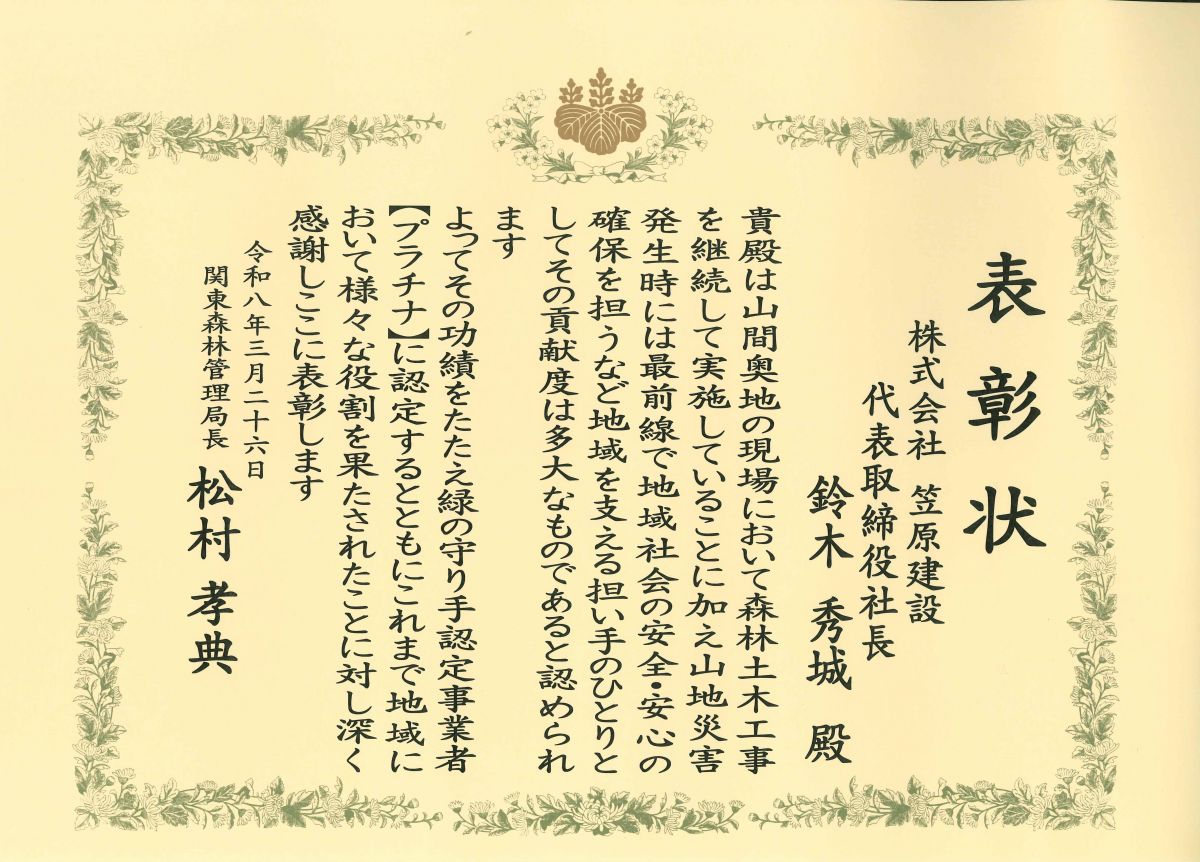 表彰状
株式会社 笠原建設
代表取締役社長
鈴木 秀城 殿
貴殿は山間奥地の現場において森林土木工事
を継続して実施していることに加え山地災害
発生時には最前線で地域社会の安全・安心の
確保を担うなど地域を支える担い手のひとりと
してその貢献度は多大なものであると認められ
ます
よってその功績をたたえ緑の守り手認定事業者
【プラチナ】に認定するとともにこれまで地域に
おいて様々な役割を果たされたことに対し深く
感謝しここに表彰します
令和八年三月二十六日
関東森林管理局長
松村 孝典